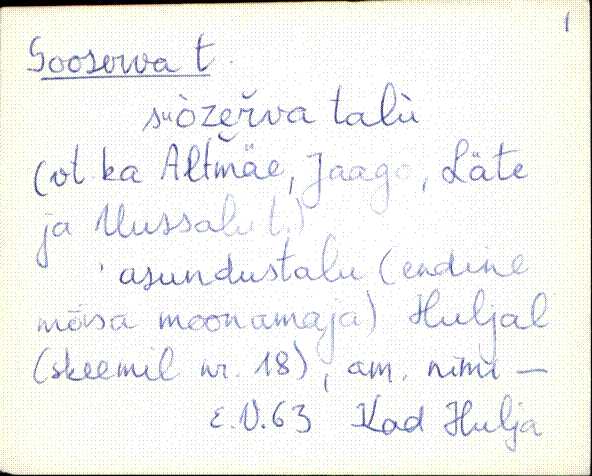 1
Sooserva t.
suòzeřva talù
(vt ka Altmäe, Jaago, Läte
ja Uussalu t.)
asundustalu (endine
mõisa moonamaja) Huljal
(skeemil nr. 18), am. nimi —
E.V.63 Kad Hulja